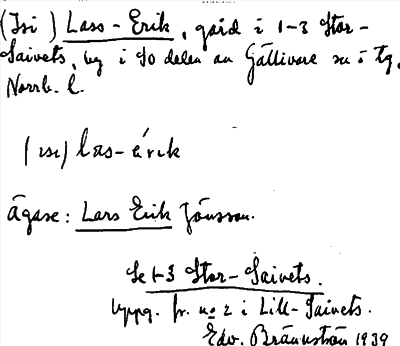 (Isi) Lass-Erik, gård i 1-3 Stor-
Saivets, by i SO delen av Gällivare sn i Tg,
Norrb. l.
(ısı) las-érık
Ägare: Lars Erik Jönsson.
Se 1-3 Stor-Saivets.
Uppg. fr. no 2 i Lill-Saivets.
Edv. Brännström 1939